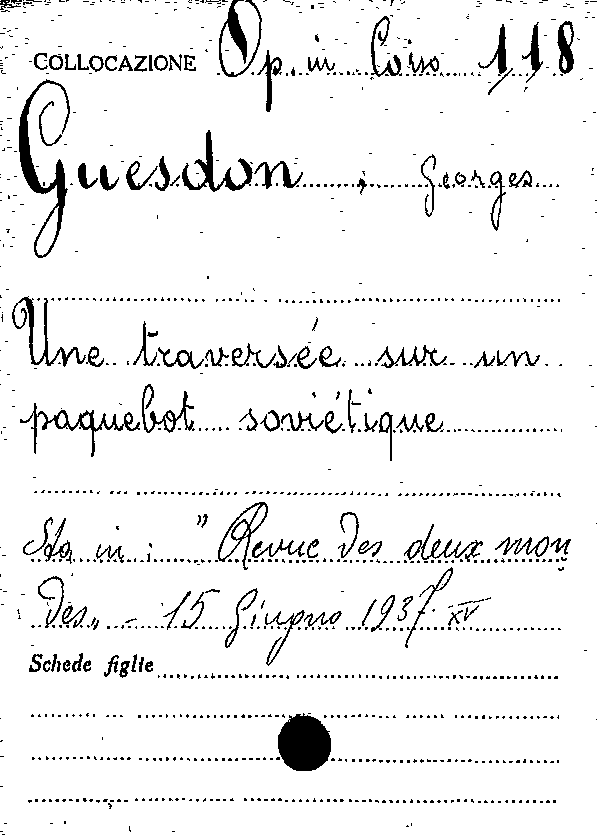 COLLOCAZIONE Op. in Corso 118
Guesdon, Georges
Une traversée sur un
paquebot soviétique
Sta in: "Revue des deux mon
des„ - 15 Giugno 1937. XV
Schede figlie